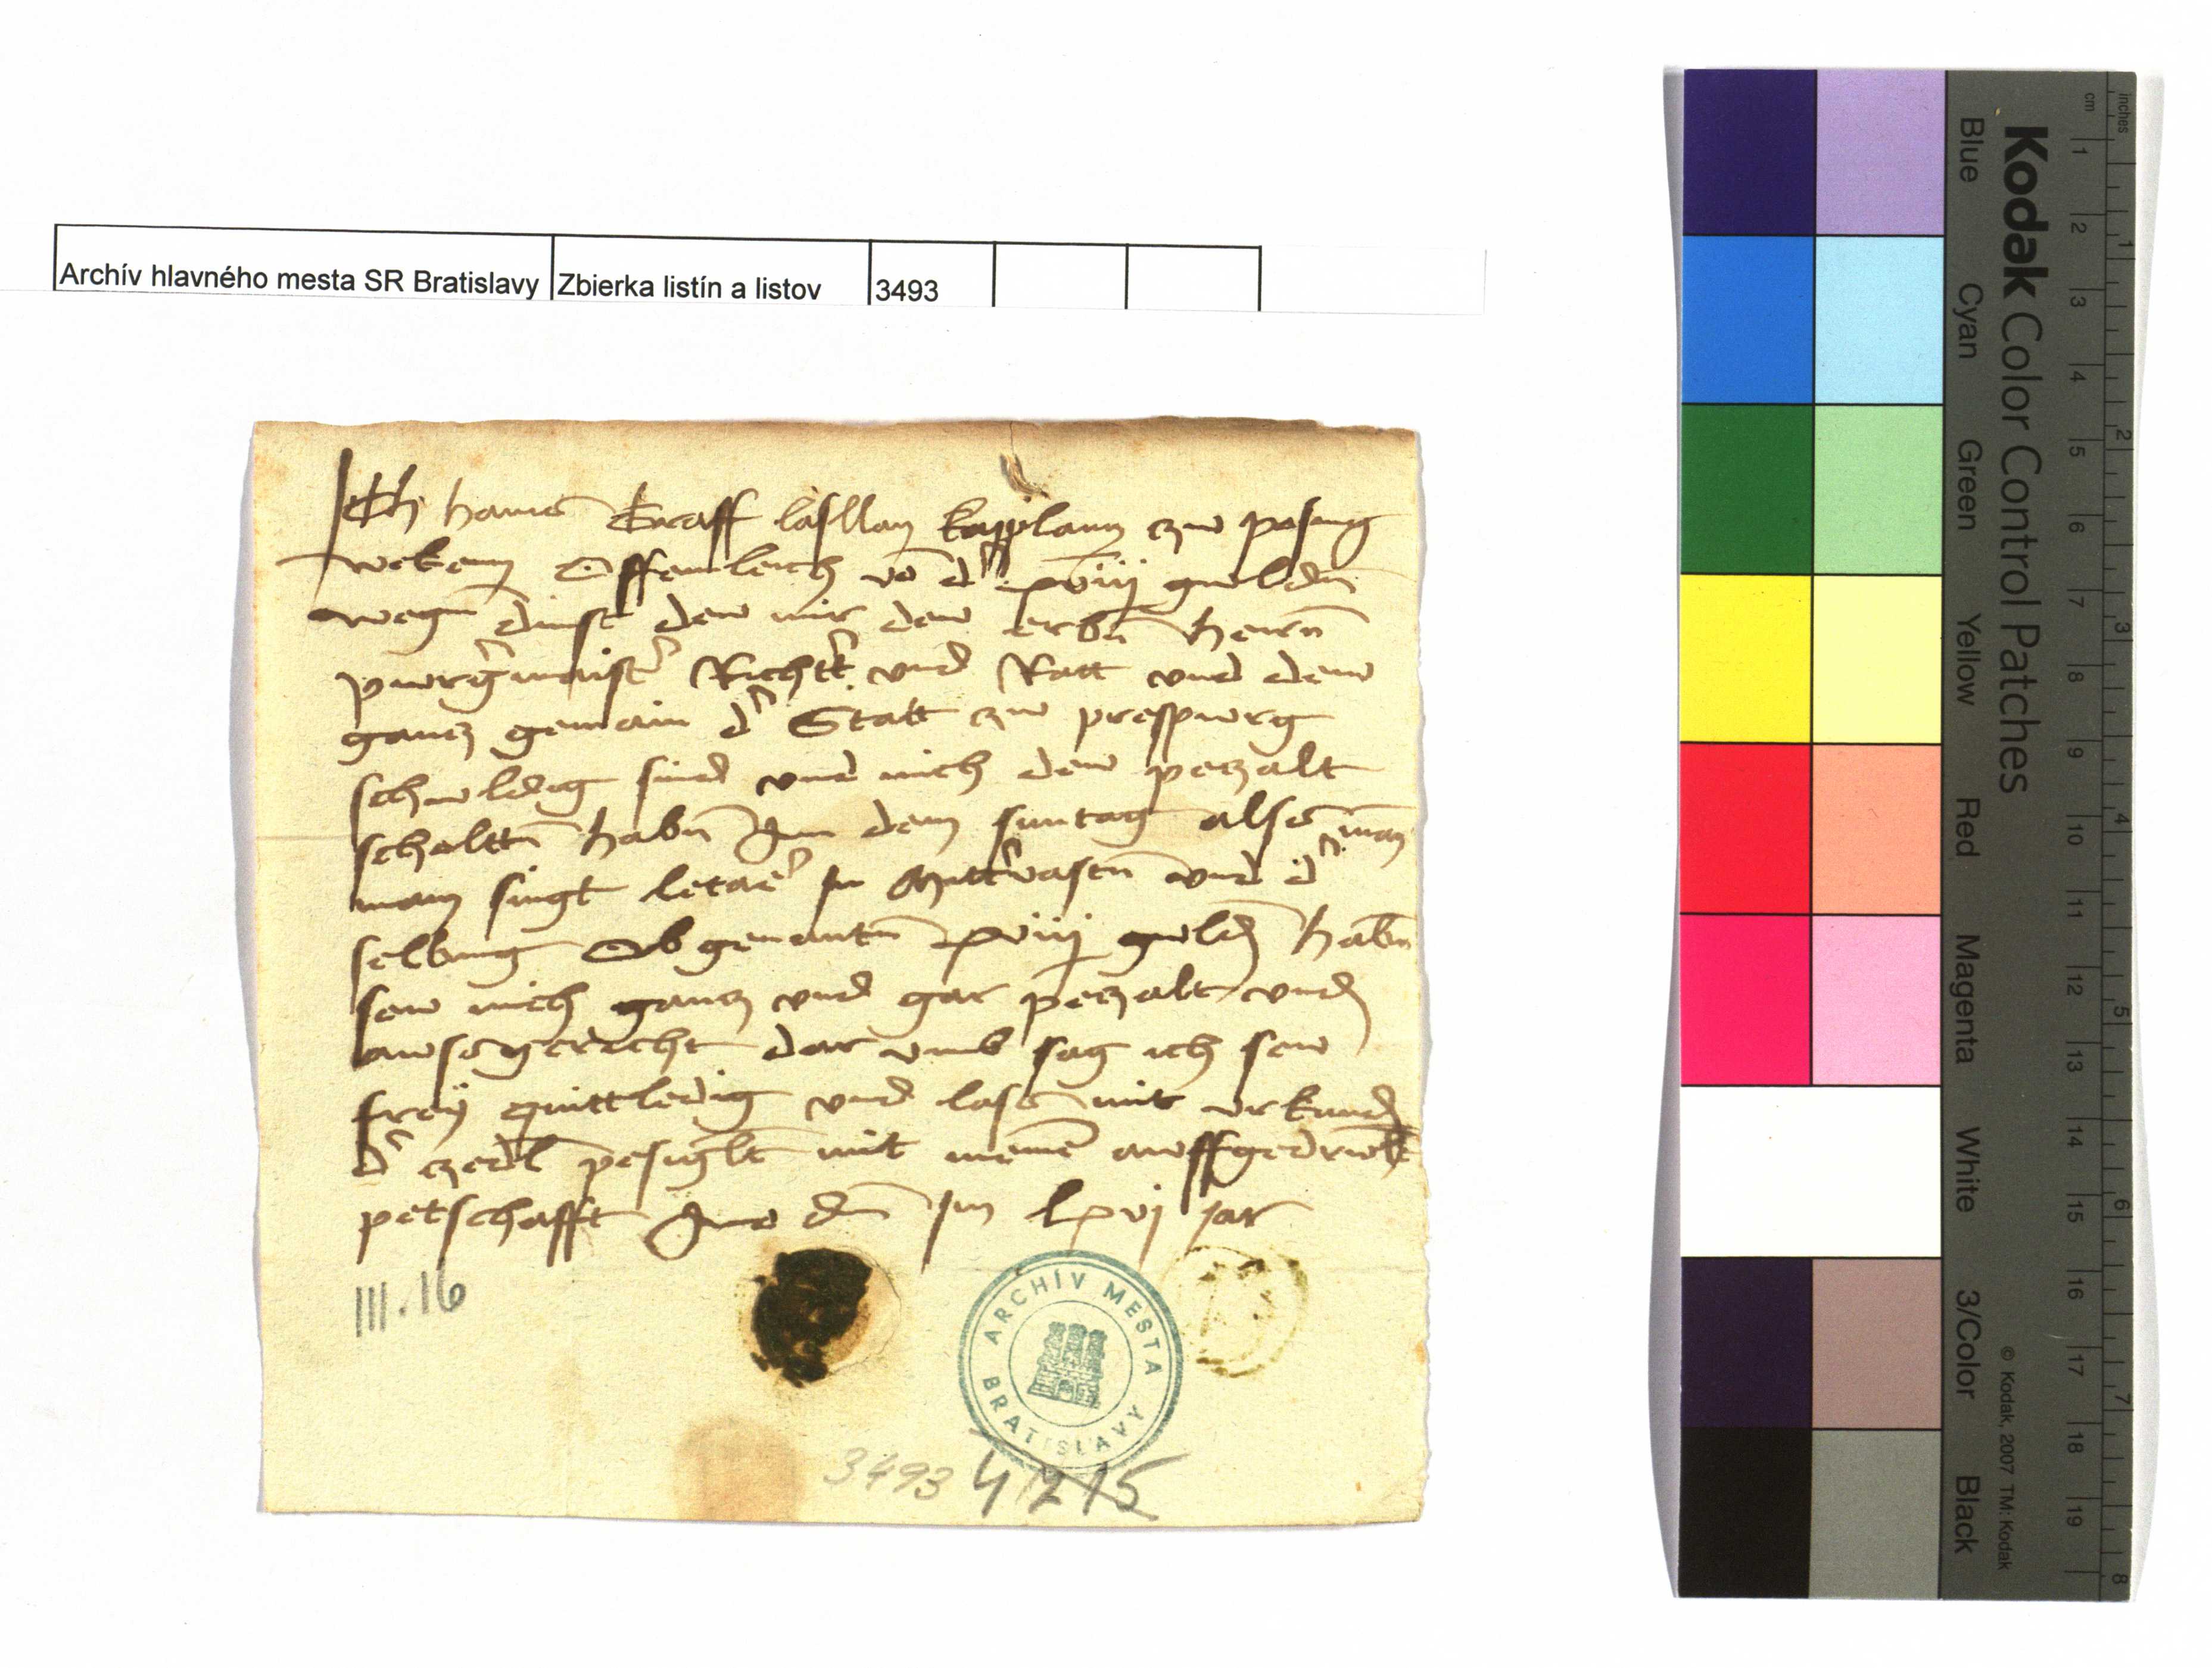 Archív hlavného mesta SR Bratislavy Zbierka listín a listov 3493
Ich hanns Graff lasllan kapplann zw posing
wekenn Offennleich vo d' xviij guldn
wegn dinst den mir den erbn herrn
pwrg'maist' Richtt' vnd Ratt vnd dew
gancz gemain d' Statt zw prespurg
schuldig sind vnd mich dew peczalt
schaltn habn Im dem suntag also man
man singt letare In Mitt'vastn vnd d'
selbing Obgenantn xviij guld habn
sew mich gancz vnd gar peczalt vnd
awsgericht dar vmb sag ich sew
frey quittledig vnd lase mit vrkund
d' czedl pesiglt mit meine auffgedrukt
petschafft Anno dm Im lxvj jar
III.16
ARCHÍV MESTA BRATISLAVY
3493 4215
Kodak Color Control Patches
Blue Cyan Green Yellow Red Magenta White 3/Color Black
© Kodak, 2007 TM: Kodak
inches 1 2 3 4 5 6 7 8
cm 1 2 3 4 5 6 7 8 9 10 11 12 13 14 15 16 17 18 19